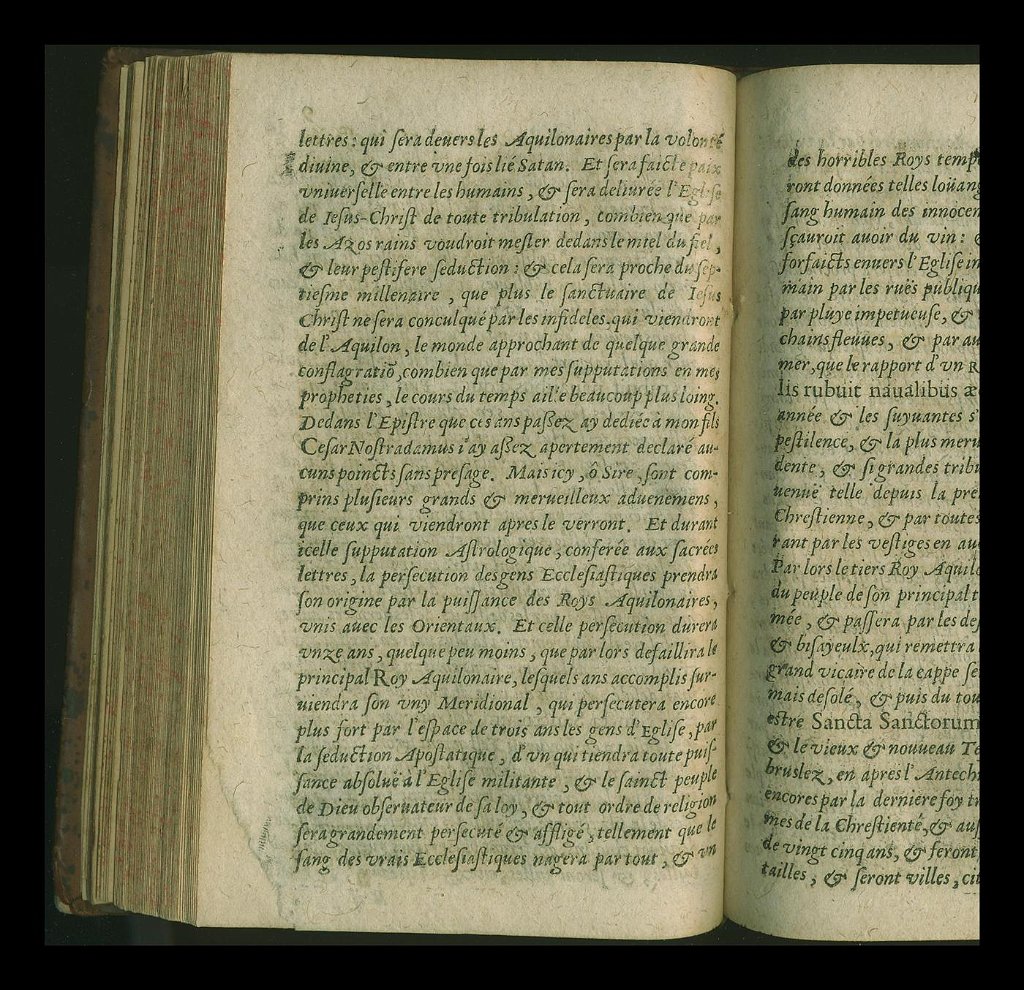 lettres : qui ſera deuers les Aquilonaires par la volonté
diuine, & entre vne fois lié Satan. Et ſera faicte paix
vniuerſelle entre les humains, & ſera deliurée l'Egliſe
de Ieſus-Chriſt de toute tribulation, combien que par
les Azos rains voudroit meſler dedans le miel du fiel,
& leur peſtifere ſeduction : & cela ſera proche du ſep-
tieſme millenaire, que plus le ſanctuaire de Ieſus
Chriſt ne ſera conculqué par les infideles. qui viendront
de l'Aquilon, le monde approchant de quelque grande
conflagratiõ, combien que par mes ſupputations en mes
propheties, le cours du temps aille beaucoup plus loing.
Dedans l'Epiſtre que ces ans paſſez ay dediée à mon fils
Ceſar Noſtradamus i'ay aſſez apertement declaré au-
cuns poincts ſans preſage. Mais icy, ô Sire, ſont com-
prins pluſieurs grands & merueilleux aduenemens,
que ceux qui viendront apres le verront. Et durant
icelle ſupputation Aſtrologique, conferée aux ſacrées
lettres, la perſecution des gens Eccleſiaſtiques prendra
ſon origine par la puiſſance des Roys Aquilonaires,
vnis auec les Orientaux. Et celle perſecution durera
vnze ans, quelque peu moins, que par lors defaillira le
principal Roy Aquilonaire, leſquels ans accomplis ſur-
uiendra ſon vny Meridional, qui perſecutera encore
plus fort par l'eſpace de trois ans les gens d'Egliſe, par
la ſeduction Apoſtatique, d'vn qui tiendra toute puiſ-
ſance abſoluë à l'Egliſe militante, & le ſainct peuple
de Dieu obſeruateur de ſa loy, & tout ordre de religion
ſera grandement perſecuté & affligé, tellement que le
ſang des vrais Eccleſiaſtiques nagera par tout, & vn
des horribles Roys temp
ront données telles loüang
ſang humain des innocen
ſçauroit auoir du vin : &
forfaicts enuers l'Egliſe in
main par les ruës publiqu
par pluye impetueuſe, &
chains fleuues, & par au
mer, que le rapport d'vn R
lis rubuit naualibus æ
année & les ſuyuantes s'
peſtilence, & la plus meru
dente, & ſi grandes tribu
uenuë telle depuis la pre
Chreſtienne, & par toutes
rant par les veſtiges en au
Par lors le tiers Roy Aquilo
du peuple de ſon principal t
mée, & paſſera par les deſ
& biſayeulx, qui remettra
grand vicaire de la cappe ſe
mais deſolé, & puis du tou
eſtre Sancta Sanctorum
& le vieux & nouueau Te
bruslez, en apres l'Antechr
encores par la derniere foy tr
mes de la Chreſtienté, & auſ
de vingt cinq ans, & feront
tailles, & ſeront villes, cit